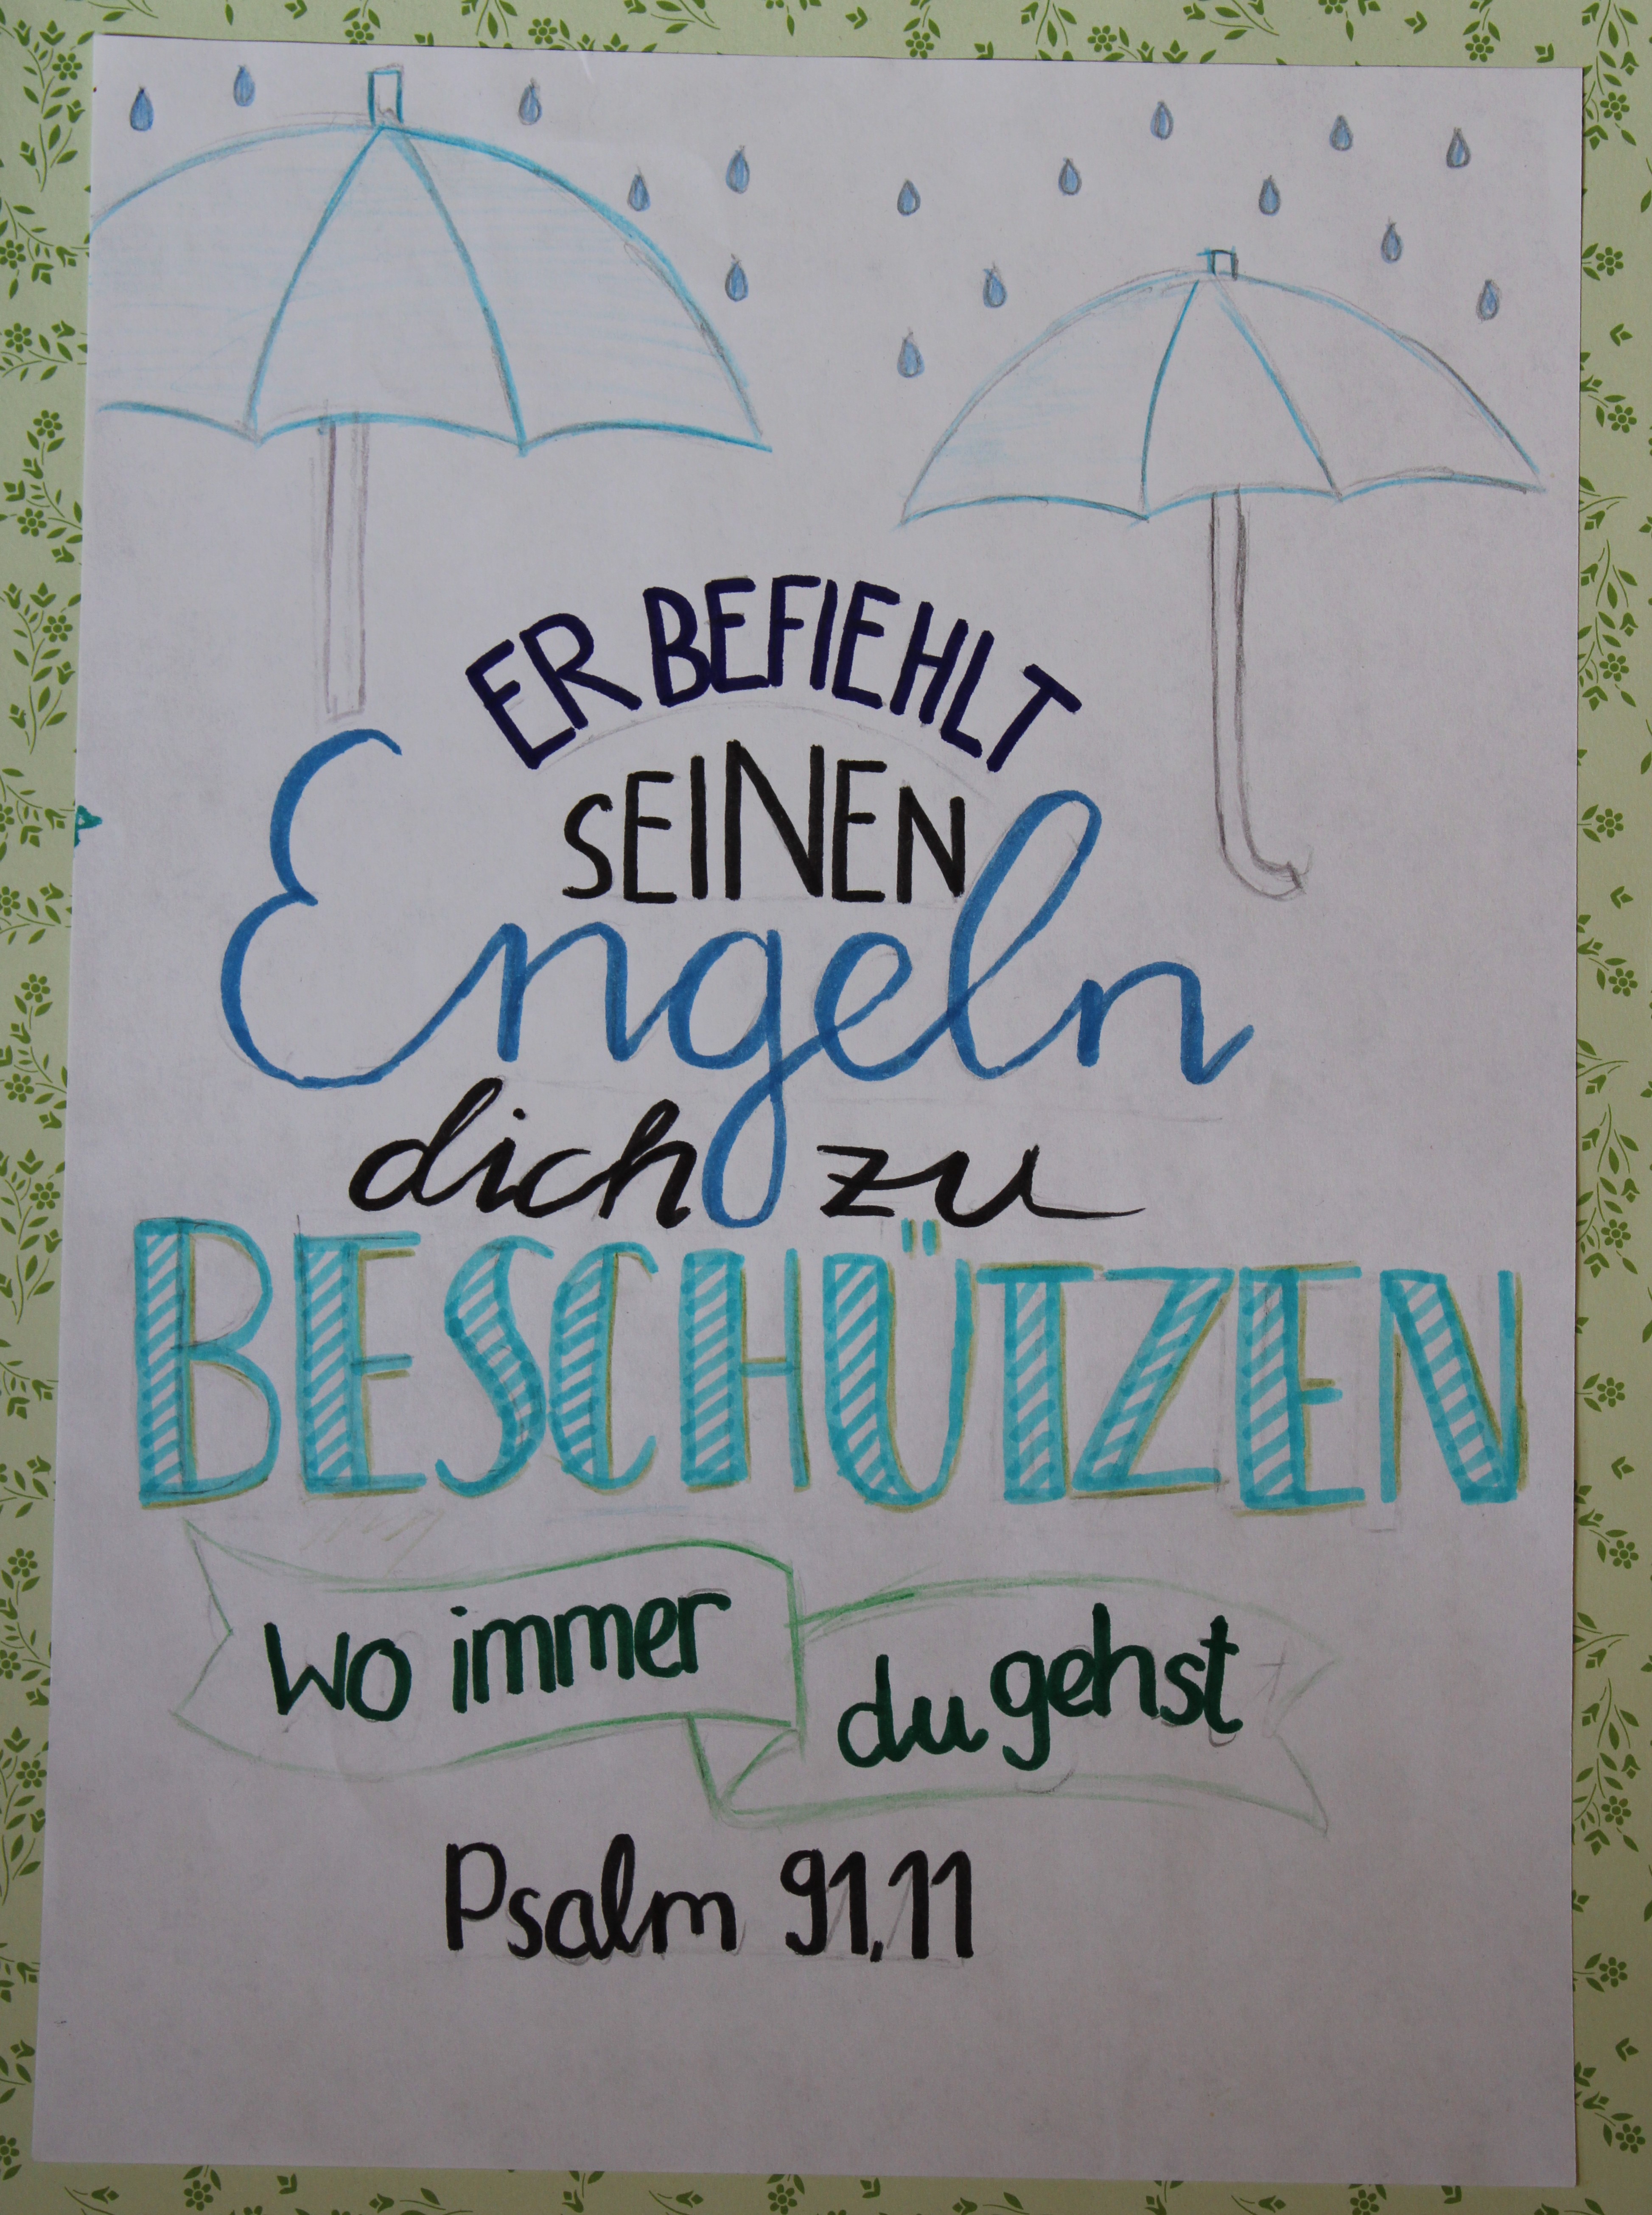 ER BEFIEHLT
SEINEN
Engeln
dich zu
BESCHÜTZEN
wo immer
du gehst
Psalm 91,11